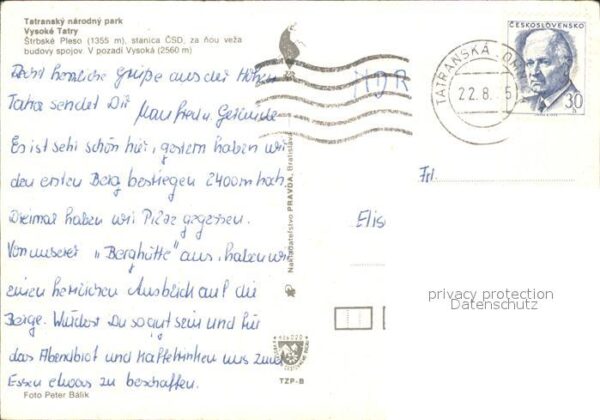 Tatranský národný park
Vysoké Tatry
Štrbské Pleso (1355 m), stanica ČSD, za ňou veža
budovy spojov. V pozadí Vysoká (2560 m)
Recht herzliche Grüße aus der Hohen
Tatra sendet Dir Manfred u. Gerlinde
Es ist sehr schön hier, gestern haben wir
den ersten Berg bestiegen 2400m hoch.
Dreimal haben wir Pilze gegessen.
Von unserer „Berghütte" aus, haben wir
einen herrlichen Ausblick auf die
Berge. Würdest Du so gut sein und für
das Abendbrot und Kaffeetrinken uns zum
Essen etwas zu beschaffen.
Foto Peter Bálik
Nakladateľstvo PRAVDA, Bratislava
TZP-B
ČESKOSLOVENSKO
30
h
TATRANSKÁ LOMN
22.8.
DDR
Frl.
Elis
privacy protection
Datenschutz